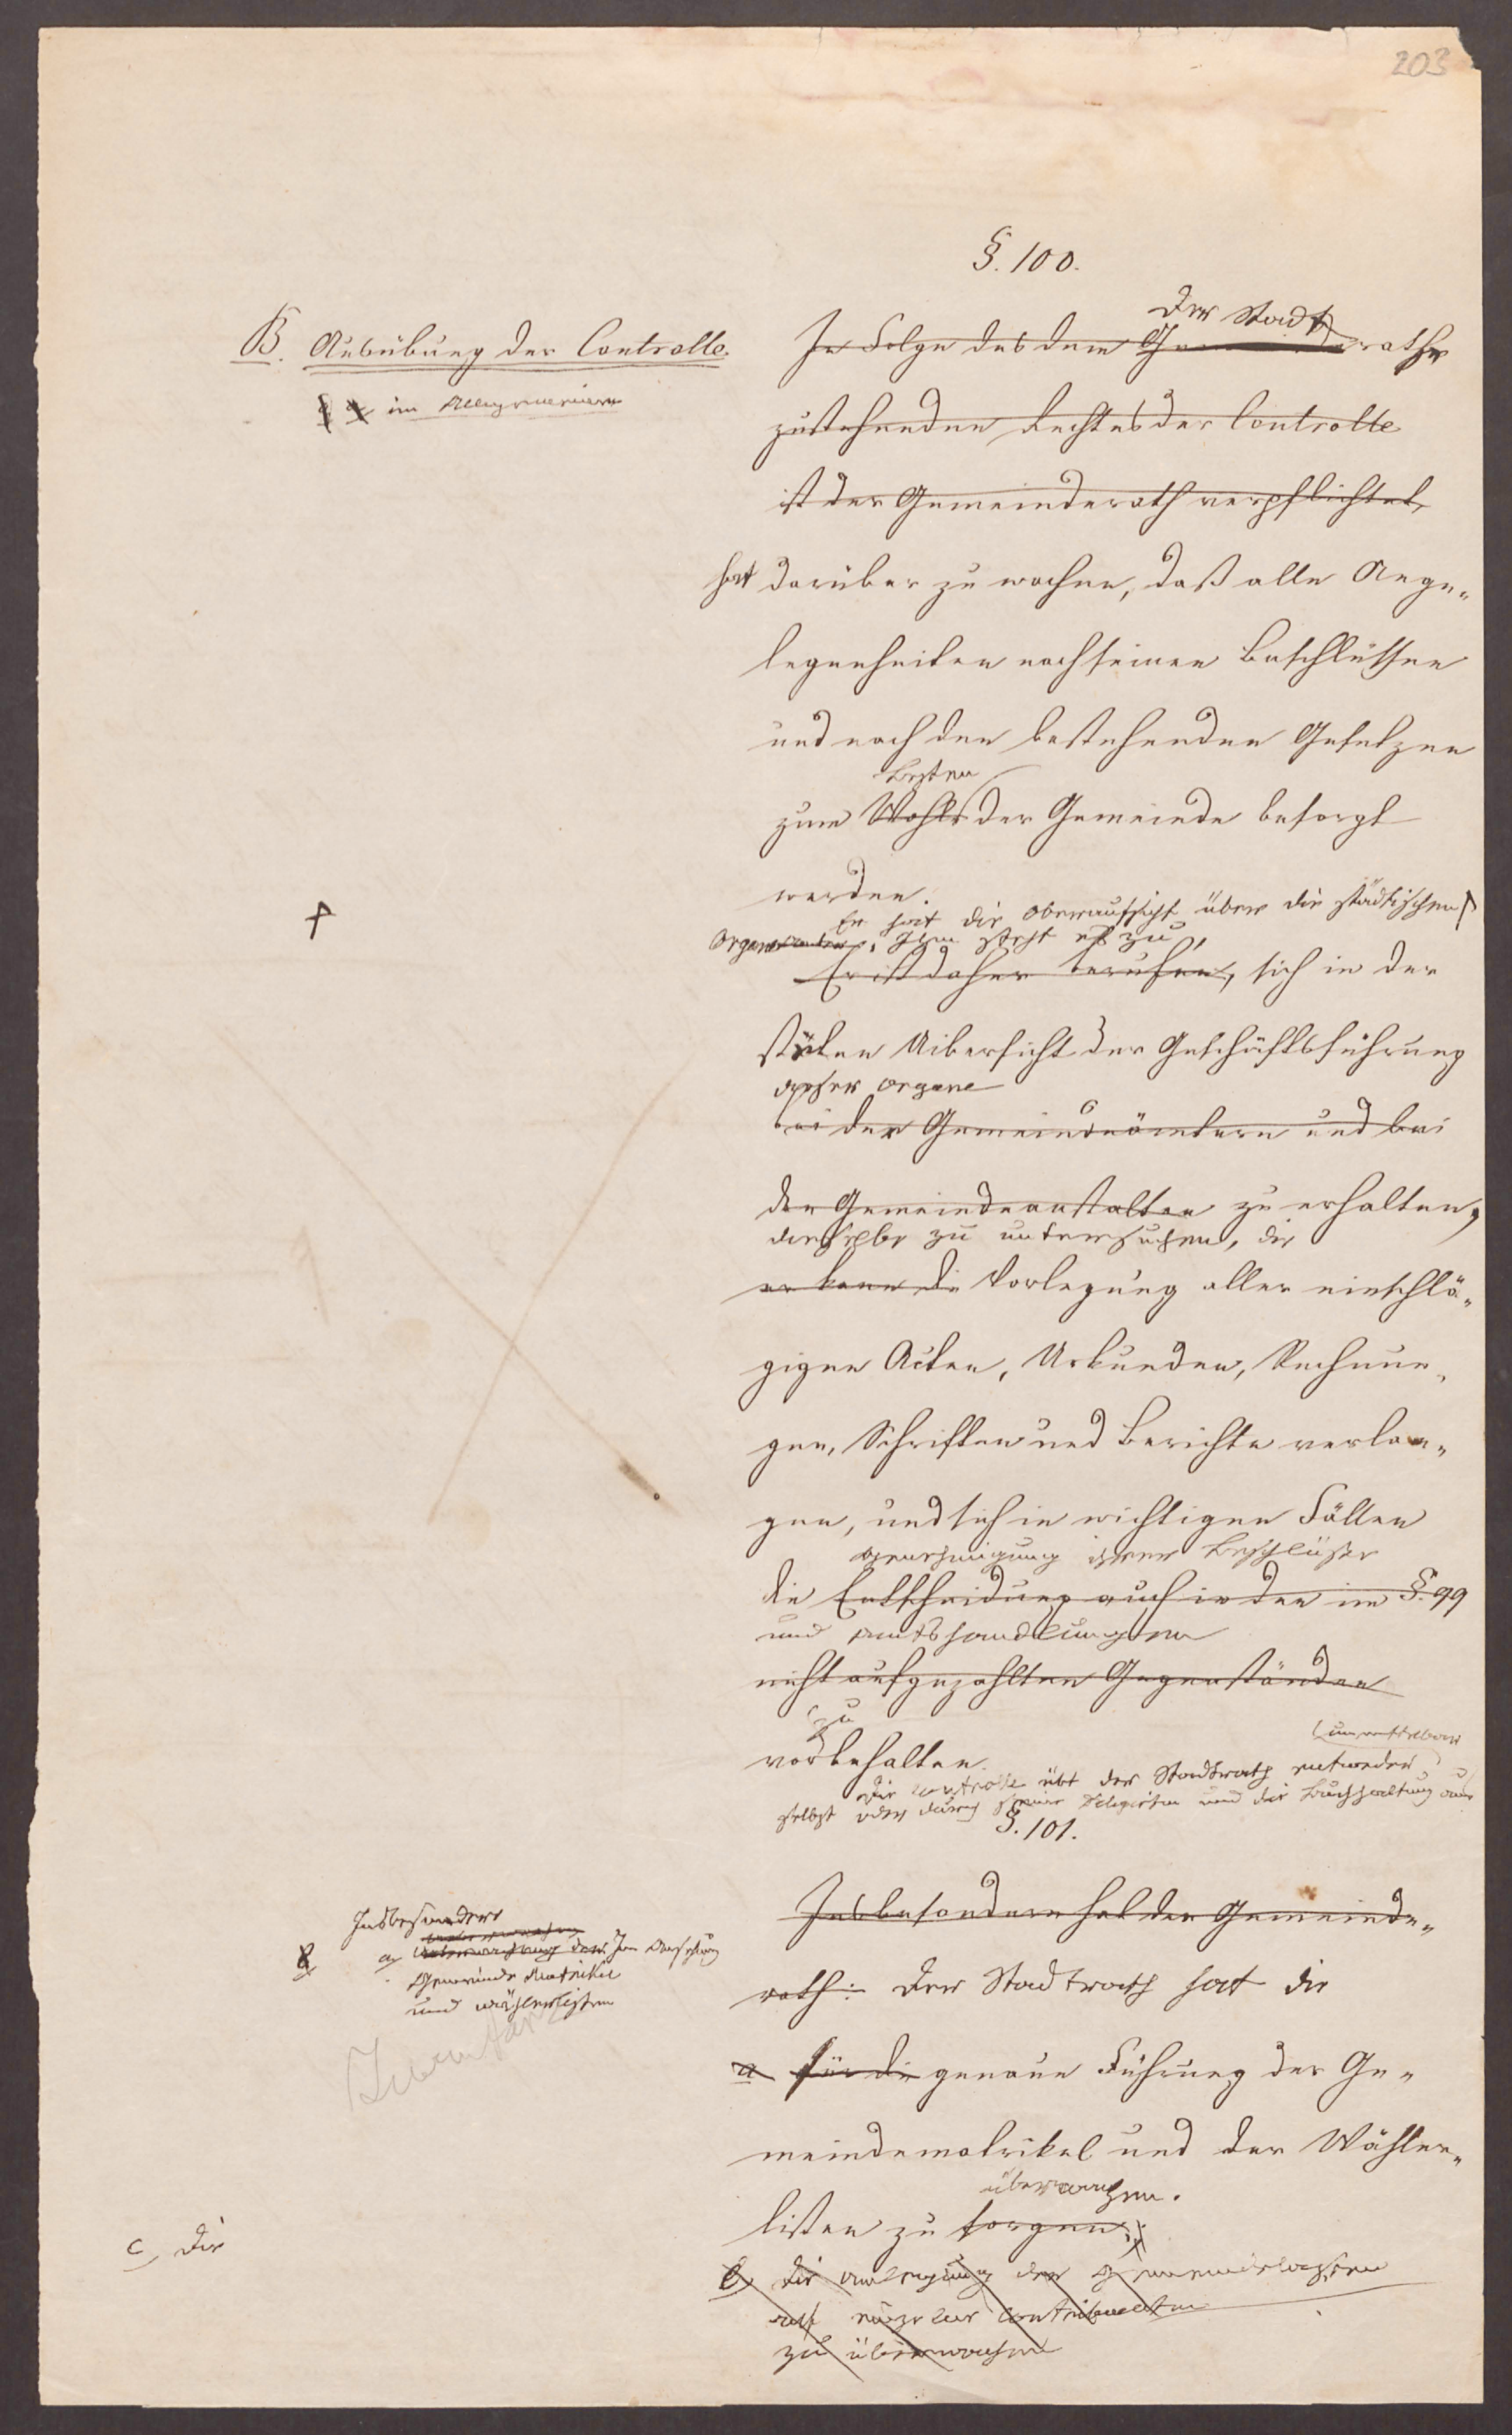 203
§. 100.
B. Ausübung der Controlle.
im Allgemeinen
Der Stadt
In Folge des dem Gemeinderathe
zustehenden Rechtes der Controlle
ist der Gemeinderath verpflichtet,
hat darüber zu wachen, daß alle Ange„
legenheiten nach seinen Beschlüssen
und nach den bestehenden Gesetzen
Besten
zum Wohle der Gemeinde besorgt
werden.
Er hat die Oberaufsicht über die städtischen
Organe. Ihm steht es zu,
Er ist daher berufen, sich in der
stäten Uibersicht der Geschäftsführung
dieser Organe
bei den Gemeindeämtern und bei
den Gemeindeanstalten zu erhalten,
dieselbe zu untersuchen, die
er kann die Vorlegung aller einschlä„
gigen Acten, Urkunden, Rechnun„
gen, Schriften und Berichte verlan„
gen, und sich in wichtigen Fällen
Genehmigung ihrer Beschlüße
die Entscheidung auch in den im §. 99
und Amtshandlungen
nicht aufgezählten Gegenständen
zu
vorbehalten.
unmittelbar
Die Controlle übt der Stadtrath entweder
selbst oder durch seine Delegirten und die Buchhaltung aus
§. 101.
Insbesondere
a, Überwachung der
Gemeinde Matrikel
und Wählerlisten
Insbesondere hat der Gemeinde„
rath: Der Stadtrath hat die
a für die genaue Führung der Ge„
meindematrikel und der Wähler„
überwachen.
listen zu sorgen;
Inventar
c, Die
b, die Anlegung der
zu überwachen